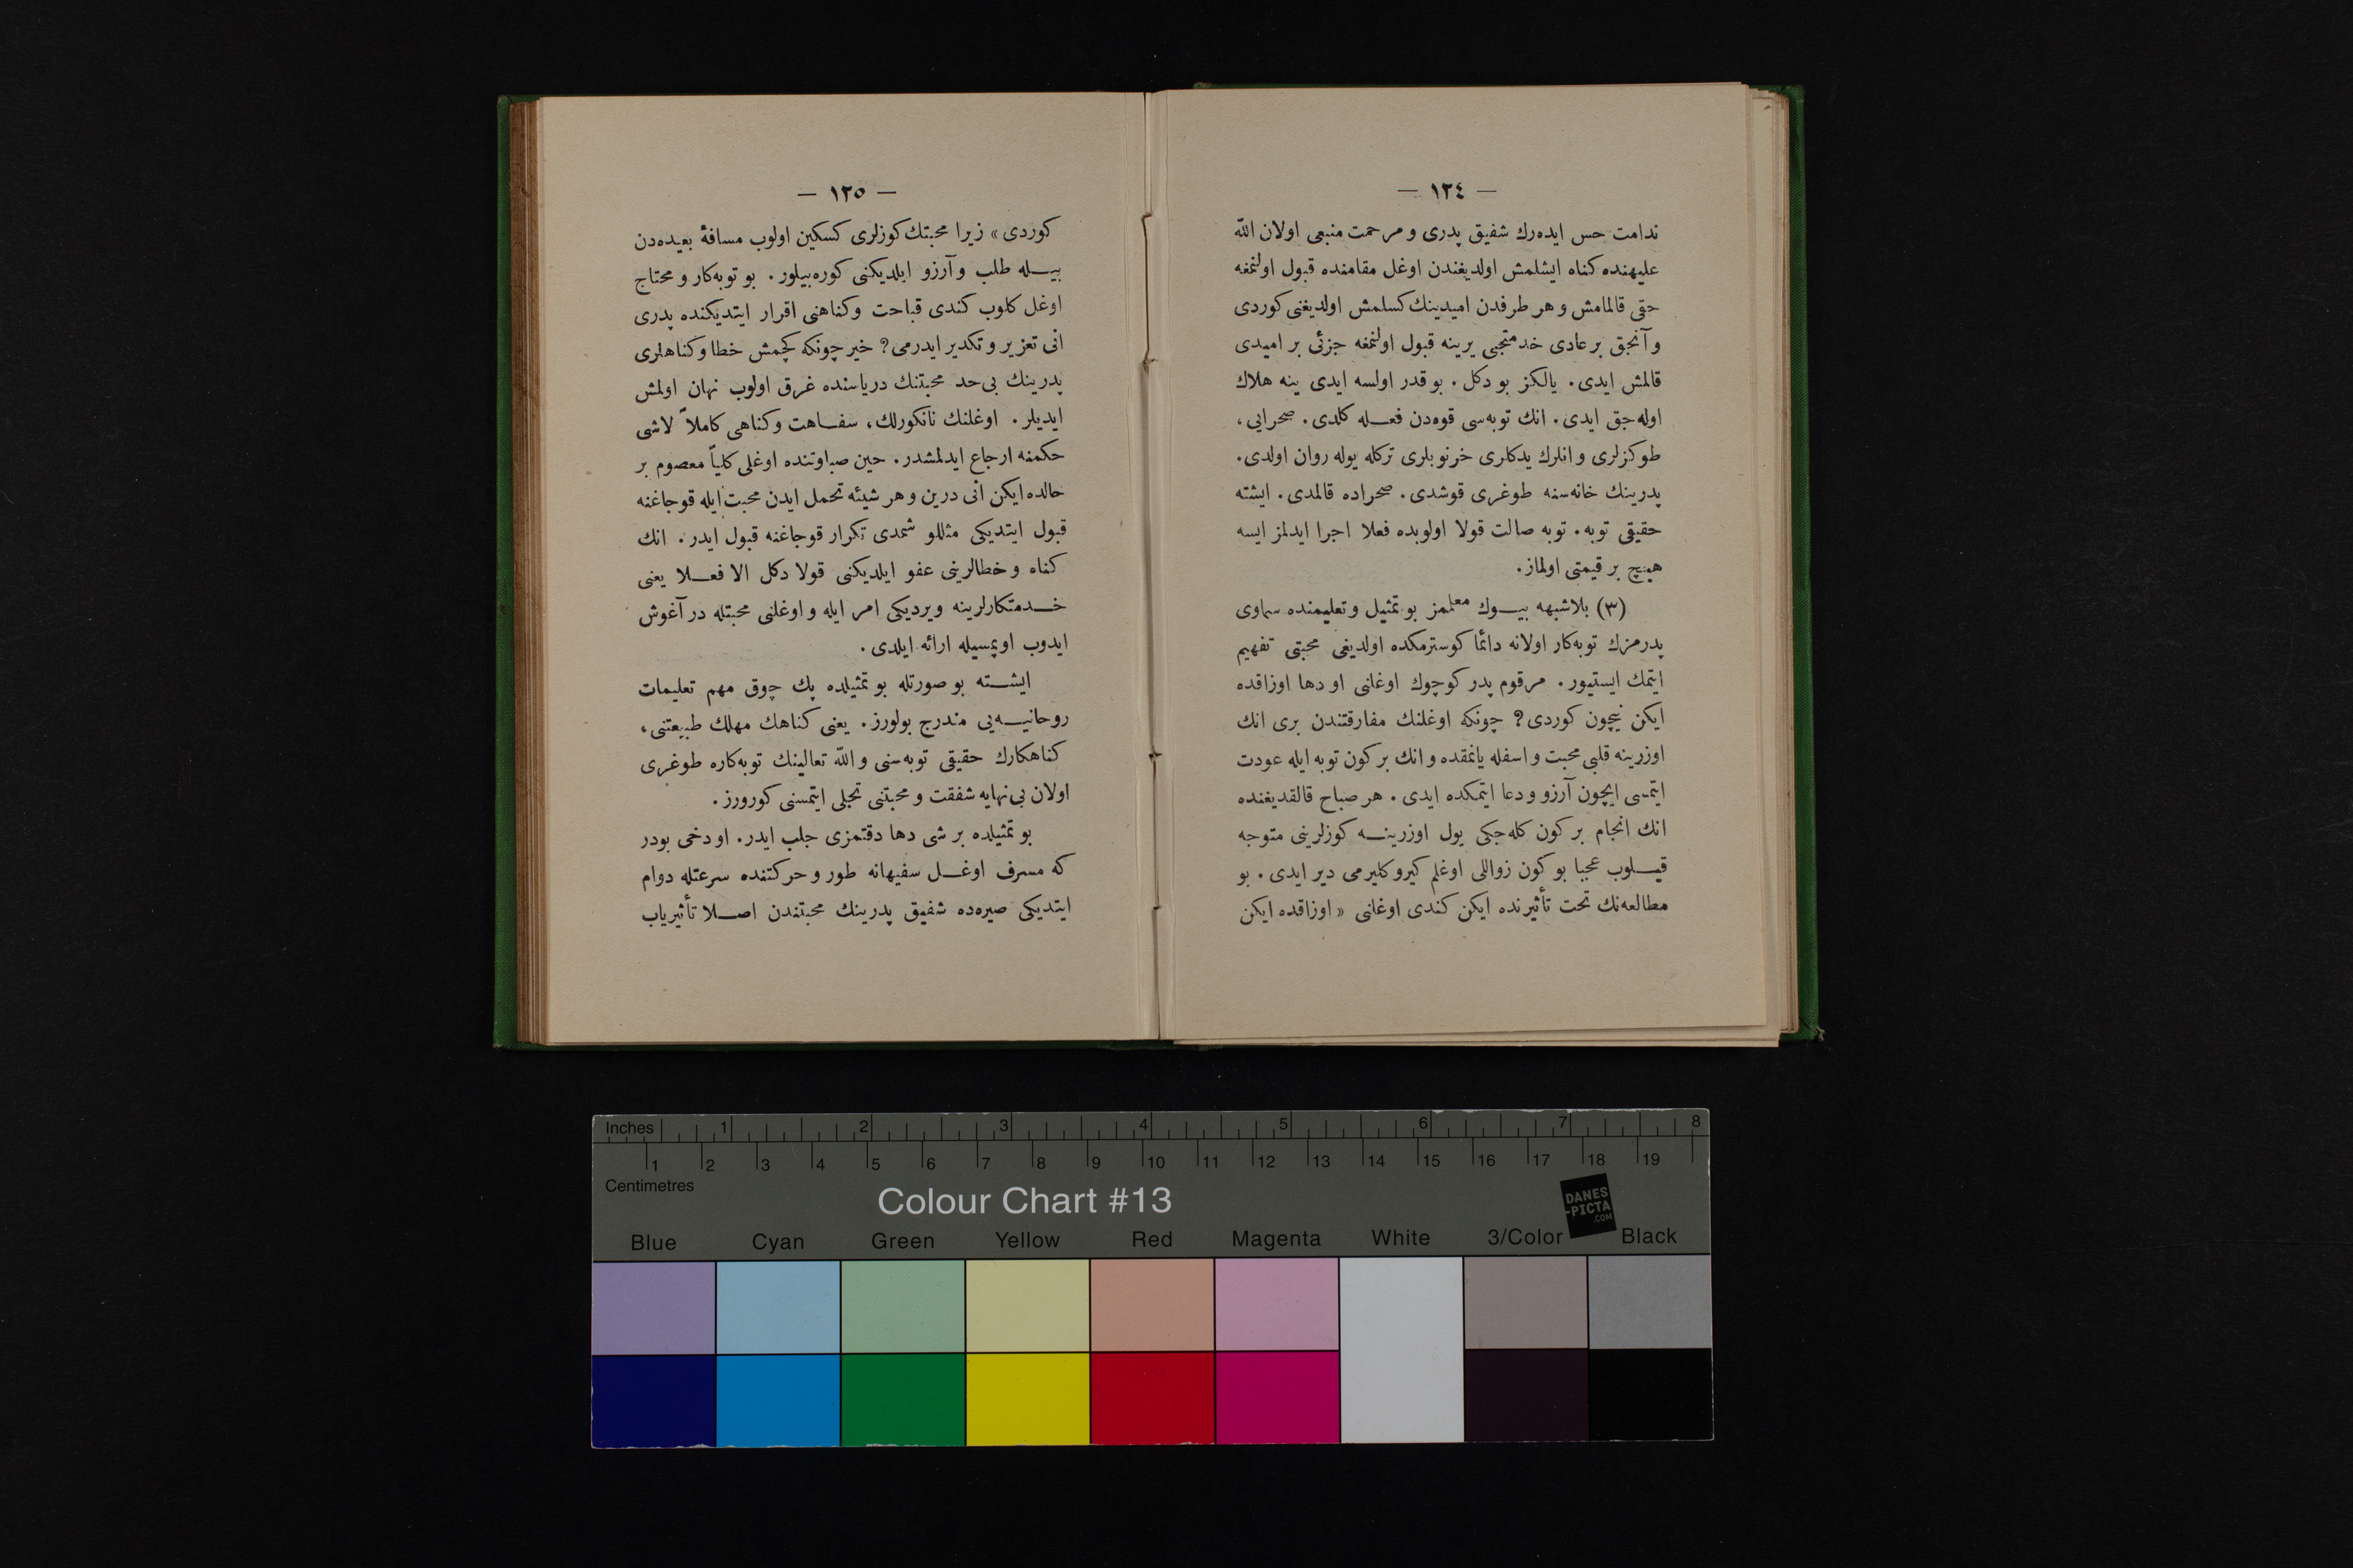 — ١٢٤ —
ندامت حس ایده‌رك شفیق پدری و مرحمت منبعی اولان اللّه
علیهنده كناه ایشلمش اولدیغندن اوغل مقامنده قبول اولنمغه
حقی قالمامش و هر طرفدن امیدینك كسلمش اولدیغنی كوردی
و آنجق بر عادی خدمتجیی یرینه قبول اولنمغه جزئی بر امیدی
قالمش ایدی. یالكز بو دكل. بو قدر اولسه ایدی ینه هلاك
اوله‌جق ایدی. انك توبه‌سی قوه‌دن فعـله كلدی. صحرایی،
طوكزلری و انلرك یدكلری خرنوبلری تركله یوله روان اولدی.
پدرینك خانه‌سنه طوغری قوشدی. صحراده قالمدی. ایشته
حقیقی توبه. توبه صالت قولا اولوبده فعلا اجرا ایدلمز ایسه
هیچ بر قیمتی اولماز.
(٣) بلاشبهه بیـوك معلمز بو تمثیل و تعلیمنده سماوی
پدرمزك توبه‌كار اولانه دائما كوسترمكده اولدیغی محبتی تفهیم
ایتمك ایستیور. مرقوم پدر كوچوك اوغلنی او دها اوزاقده
ایكن نیچون كوردی؟ چونكه اوغلنك مفارقتندن بری انك
اوزرینه قلبی محبت و اسفله یانمقده و انك بر كون توبه ایله عودت
ایتمسی ایچون آرزو و دعا ایتمكده ایدی. هر صباح قالقدیغنده
انك انجام بر كون كله‌جكی یول اوزرینـه كوزلرینی متوجه
قیـلوب عجبا بو كون زواللی اوغلم كیرو كلیرمی دیر ایدی. بو
مطالعه‌نك تحت تأثیرنده ایكن كندی اوغلنی « اوزاقده ایكن
— ١٢٥ —
كوردی» زیرا محبتك كوزلری كسكین اولوب مسافهٔ بعیده‌دن
بیـله طلب و آرزو ایلدیكنی كوره‌بیلور. بو توبه‌كار و محتاج
اوغل كلوب كندی قباحت و كناهنی اقرار ایتدیكنده پدری
انی تعزیر و تكدیر ایدرمی؟ خیر چونكه كچمش خطا و كناهلری
پدرینك بی‌حد محبتنك دریاسنده غرق اولوب نهان اولمش
ایدیلر. اوغلنك نانكورلك، سفـاهت و كناهی كاملاً لاشی
حكمنه ارجاع ایدلمشدر. حین صباوتنده اوغلی كلیاً معصوم بر
حالده ایكن انی درین و هر شیئه تحمل ایدن محبت ایله قوجاغنه
قبول ایتدیكی مثللو شمدی تكرار قوجاغنه قبول ایدر. انك
كناه و خطالرینی عفو ایلدیكنی قولا دكل الا فعـلا یعنی
خـدمتكارلرینه ویردیكی امر ایله و اوغلنی محبتله در آغوش
ایدوب اوپمسیله ارائه ایلدی.
ایشـته بو صورتله بو تمثیلده پك چوق مهم تعلیمات
روحانیـه‌یی مندرج بولورز. یعنی كناهك مهلك طبیعتنی،
كناهكارك حقیقی توبه‌سنی و اللّه تعالینك توبه‌كاره طوغری
اولان بی‌نهایه شفقت و محبتنی تجلی ایتمسنی كورورز.
بو تمثیلده بر شی دها دقتمزی جلب ایدر. او دخی بودر
كه مسرف اوغـل سفیهانه طور و حركتنده سرعتله دوام
ایتدیكی صیره‌ده شفیق پدرینك محبتندن اصـلا تأثیریاب
Inches 1 2 3 4 5 6 7 8
1 2 3 4 5 6 7 8 9 10 11 12 13 14 15 16 17 18 19
Centimetres
Colour Chart #13
DANES
-PICTA
.COM
Blue Cyan Green Yellow Red Magenta White 3/Color Black